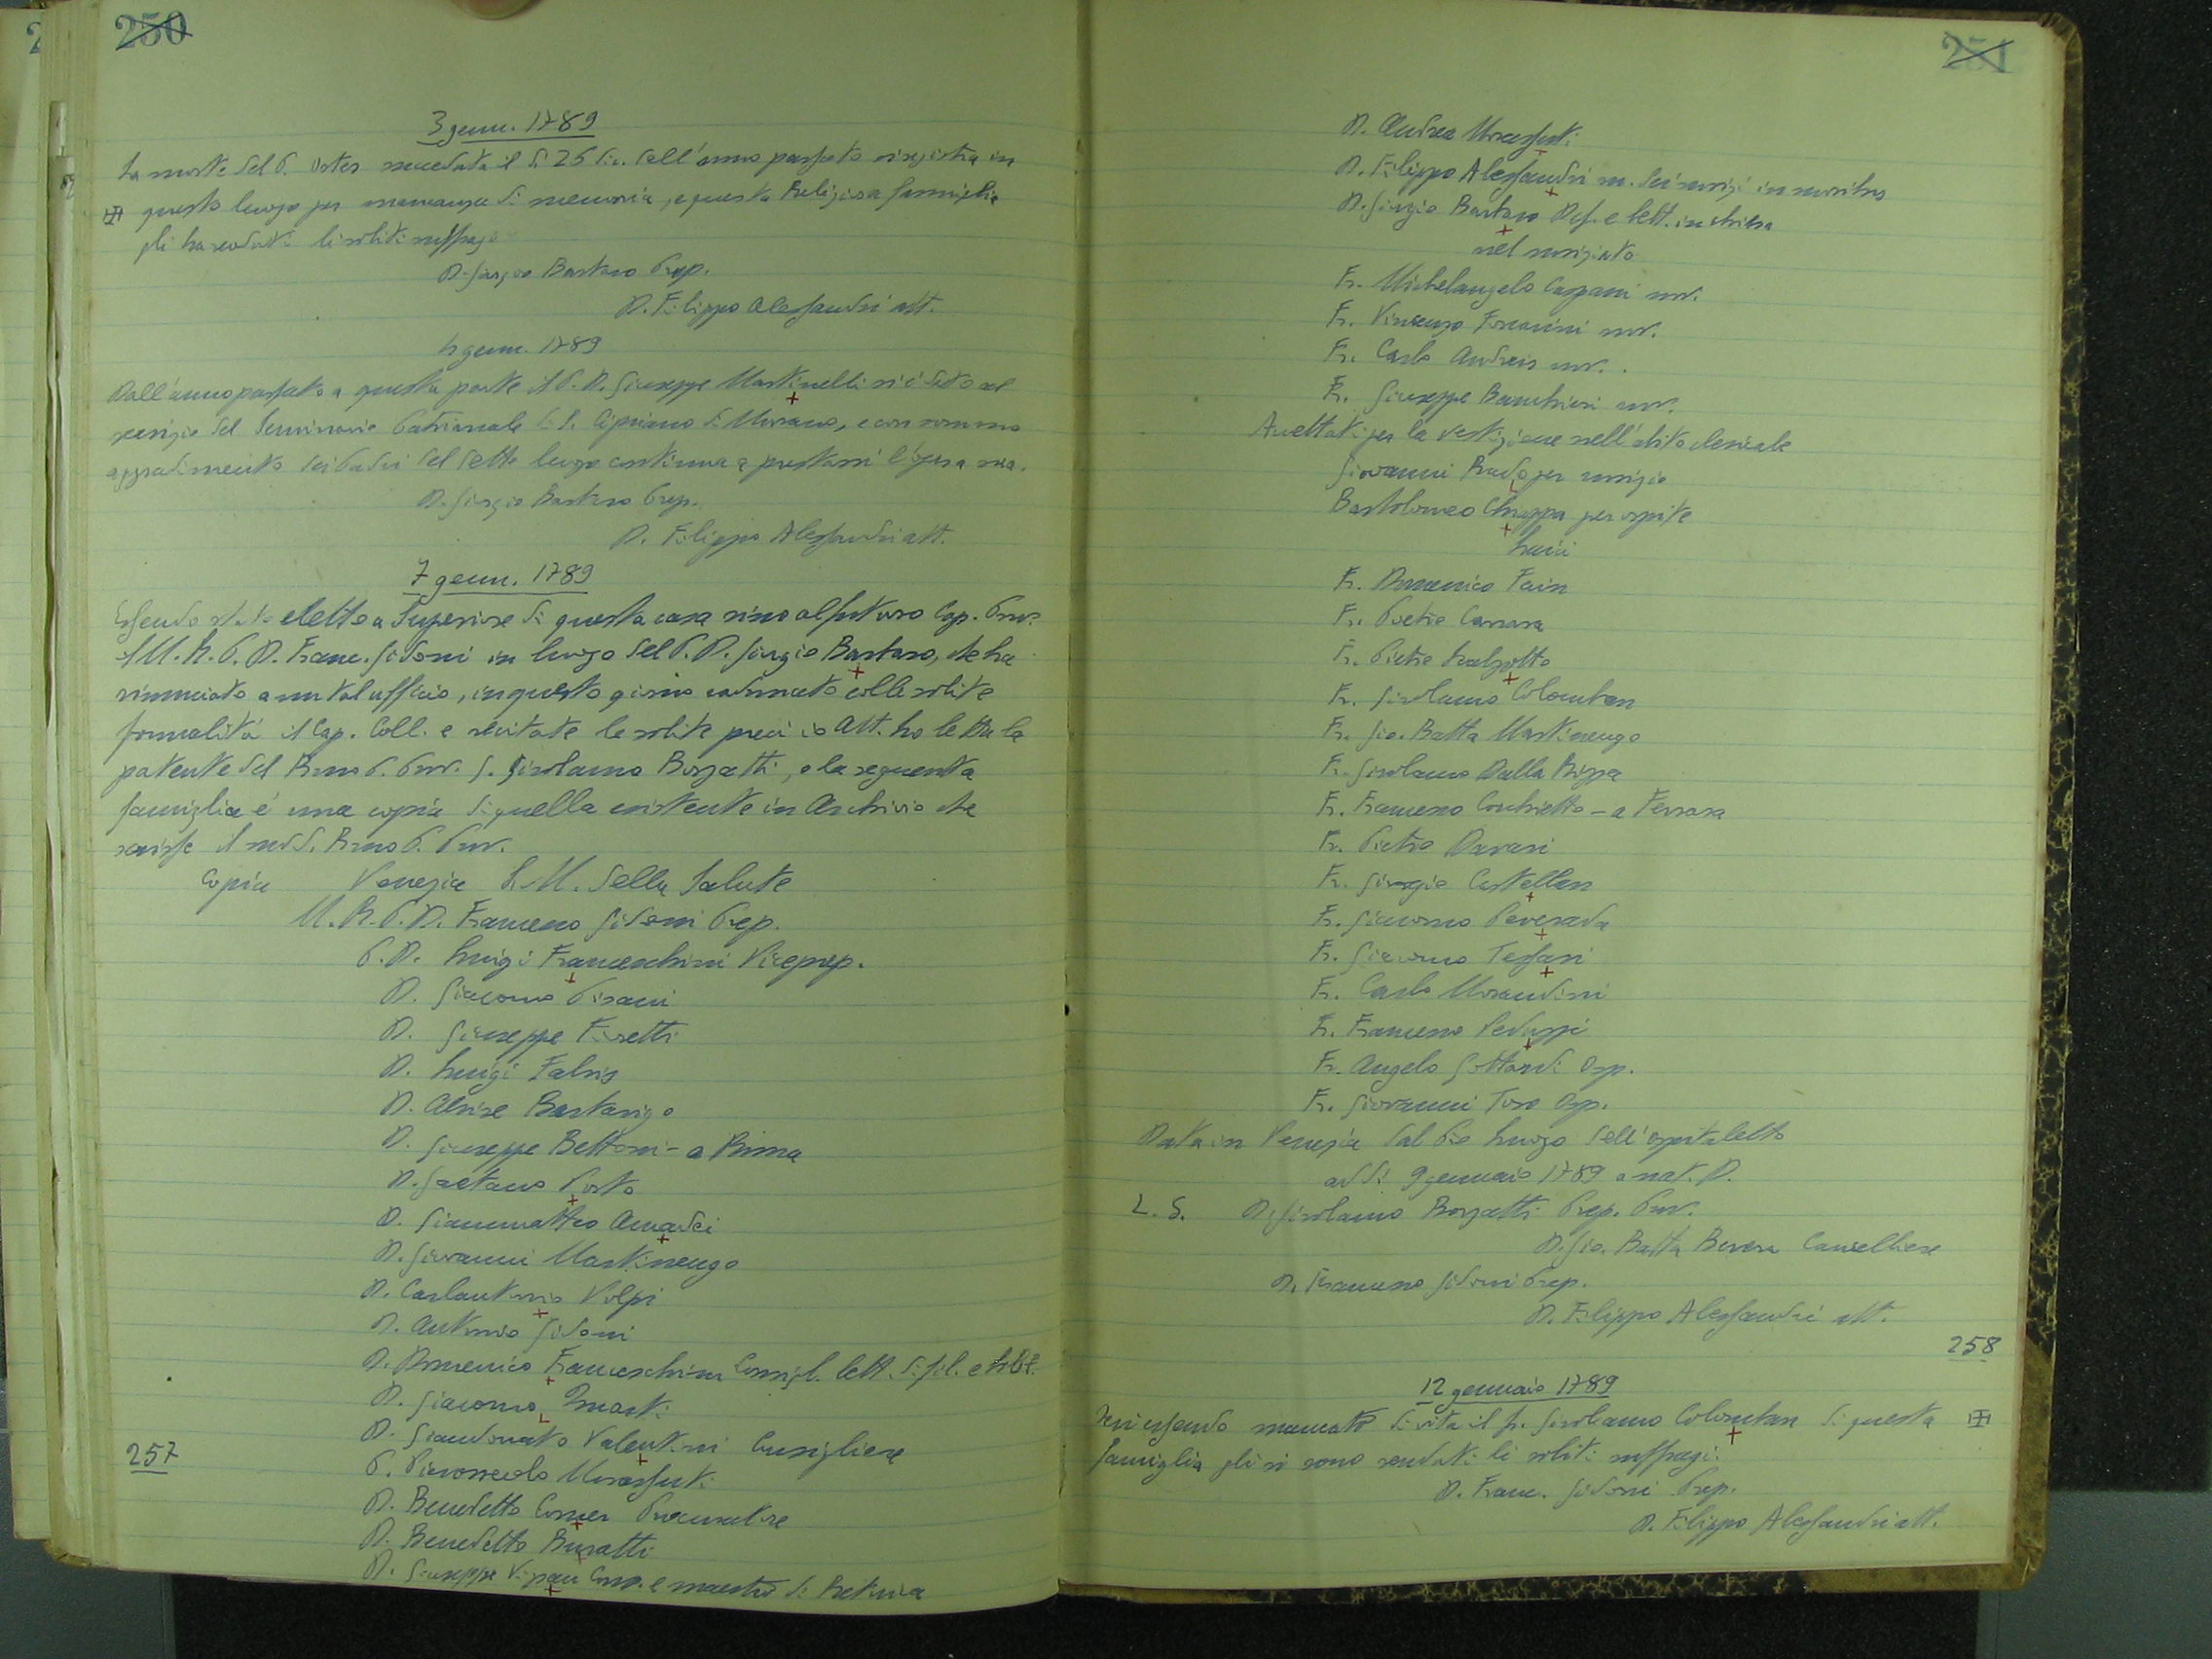 250
3 genn. 1789
La morte del P. Ortes succeduta il dì 26 dic. dell'anno passato si registra in
questo luogo per mancanza di memoria, e questa Religiosa famiglia
gli ha renduti li soliti suffragi
D. Giorgio Bartaro Prep.
D. Filippo Alessandri att.
4 genn. 1789
Dall'anno passato a questa parte il P. D. Giuseppe Martinelli si è dato al
servizio del Seminario Patriarcale di S. Cipriano di Murano, e con sommo
aggradimento dei Padri del detto luogo continua a prestarvi l'opera sua.
D. Giorgio Bartaro Prep.
D. Filippo Alessandri att.
7 genn. 1789
Essendo stato eletto a Superiore di questa casa sino al futuro Cap. Prov.
il M. R. P. D. Franc. Gidoni in luogo del P. D. Giorgio Bartaro, che ha
rinunciato a un tal ufficio, in questo giorno radunato colle solite
formalità il Cap. Coll. e recitate le solite preci io Att. ho letta la
patente del Rmo P. Prov. G. Girolamo Borzatti, e la seguente
famiglia è una copia di quella esistente in Archivio che
scrisse il med. Rmo P. Prov.
Copia Venezia S. M. della Salute
M. R. P. D. Francesco Gidoni Prep.
P. D. Luigi Franceschini Viceprep.
D. Giacomo Pisani
D. Giuseppe Fioretti
D. Luigi Fabris
D. Alvise Barbarigo
D. Giuseppe Bettoni - a Roma
D. Gaetano Porto
D. Giammatteo Amadei
D. Giovanni Martinengo
D. Carlantonio Volpi
D. Antonio Gidoni
D. Domenico Franceschini Consigl. lett. di fil. e bibl.
D. Giacomo Quarti
D. Giandonato Valentini Consigliere
257
P. Pierossecolo Morassuti
D. Benedetto Corner Procuratore
D. Benedetto Buratti
D. Giuseppe Vipau Cons. e maestro di Retorica
251
D. Andrea Morassuti
D. Filippo Alessandri m. dei novizi in moribus
D. Giorgio Bartaro Def. e lett. in chiesa
nel noviziato
Fr. Michelangelo Caspani nov.
Fr. Vincenzo Foscarini nov.
Fr. Carlo Andreis nov.
Fr. Giuseppe Banchieri nov.
Accettati per la vestizione nell'abito clericale
Giovanni Prado per novizio
Bartolomeo Chiappa per ospite
Laici
Fr. Domenico Fain
Fr. Pietro Carrara
Fr. Pietro
Fr. Girolamo Colomban
Fr. Gio. Batta Martinengo
Fr. Girolamo Dalla Rizza
Fr. Francesco - a Ferrara
Fr. Pietro Davari
Fr. Giorgio Castellan
Fr. Giacomo Peverada
Fr. Giacomo Tessari
Fr. Carlo Morandini
Fr. Francesco Peduzzi
Fr. Angelo Gottardi Osp.
Fr. Giovanni Toso Osp.
Data in Venezia dal Pio Luogo dell'ospitaletto
addì 9 gennaio 1789 a nat. D.
L. S. D. Girolamo Borzatti Prep. Prov.
D. Gio. Batta Bevera Cancelliere
D. Francesco Gidoni Prep.
D. Filippo Alessandri att.
258
12 gennaio 1789
Ieri essendo mancato di vita il fr. Girolamo Colomban di questa
famiglia gli si sono renduti li soliti suffragi.
D. Franc. Gidoni Prep.
D. Filippo Alessandri att.